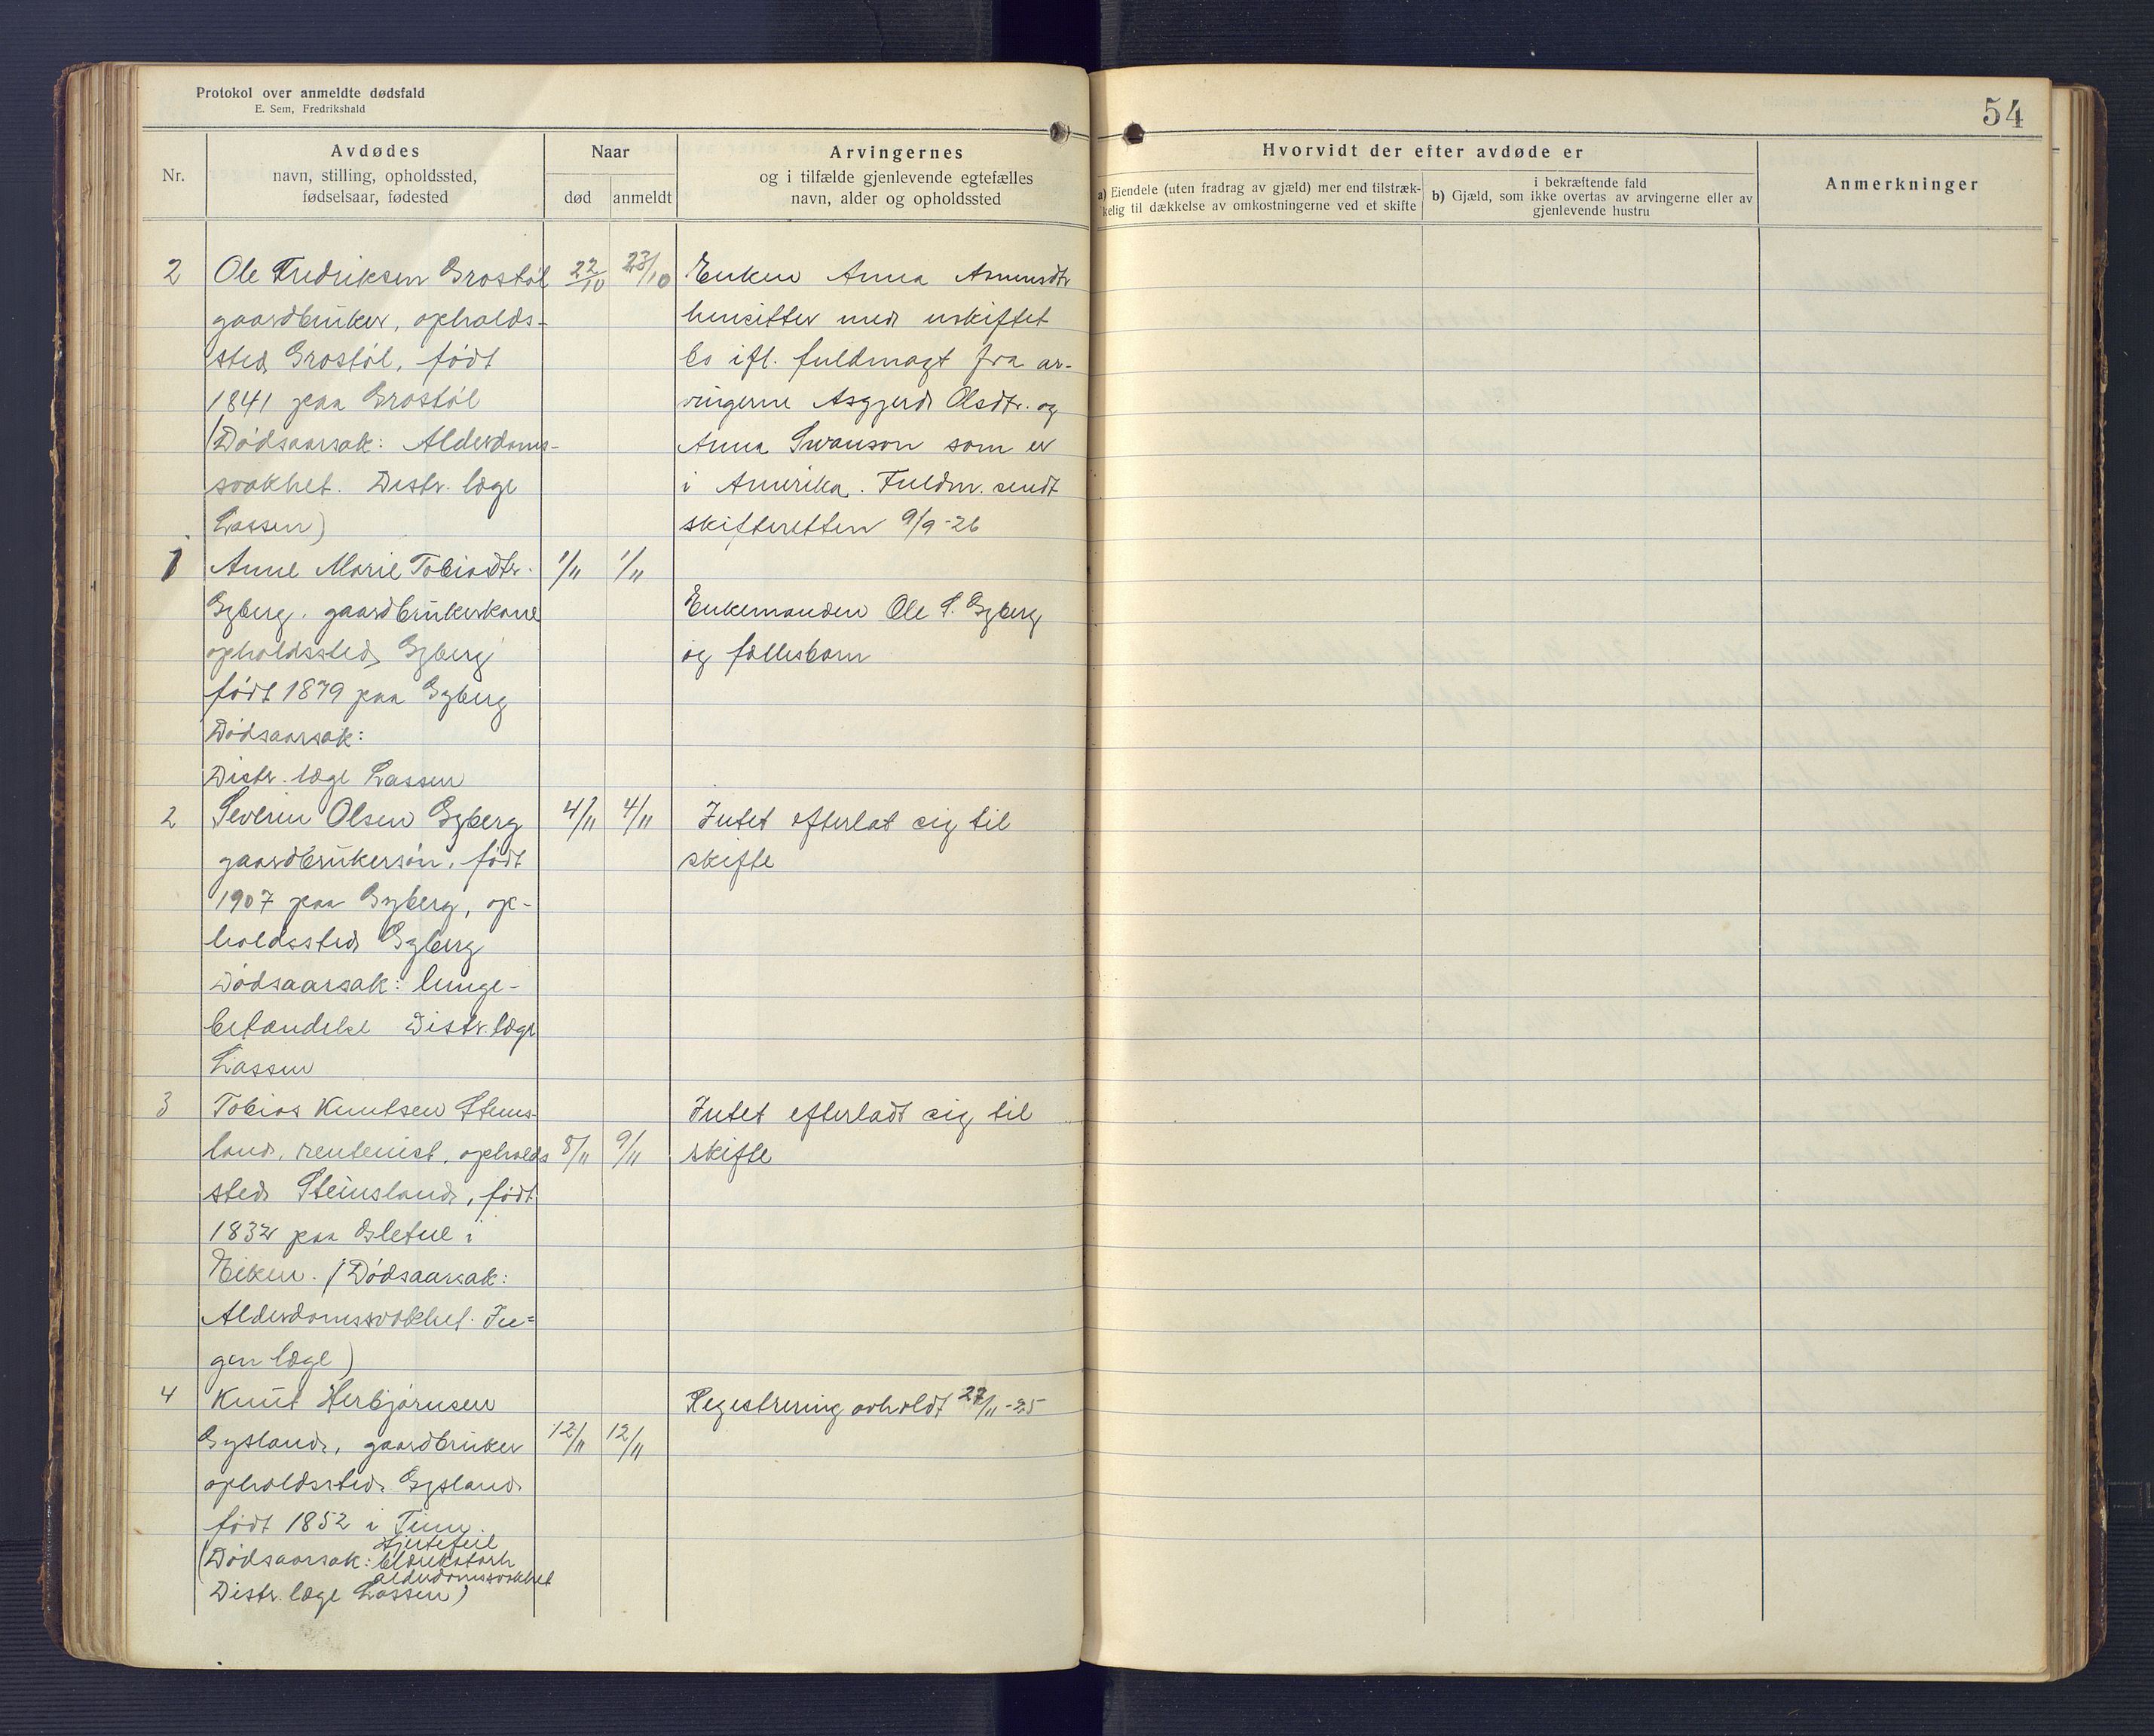 Protokol over anmeldte dødsfald
E. Sem, Fredrikshald
54
Nr.
Avdødes
navn, stilling, opholdssted,
fødselsaar, fødested
Naar
død
anmeldt
Arvingernes
og i tilfælde gjenlevende egtefælles
navn, alder og opholdssted
Hvorvidt der efter avdøde er
a) Eiendele (uten fradrag av gjæld) mer end tilstræk-
kelig til dækkelse av omkostningerne ved et skifte
i bekræftende fald
b) Gjæld, som ikke overtas av arvingerne eller av
gjenlevende hustru
Anmerkninger
2 Ole Fredriksen Grostøl 22/10 23/10
gaardbruker, opholds-
sted Grostøl, født
1841 paa Grostøl
(Dødsaarsak: Alderdoms-
svakhet. Distr. læge
Lassen)
Enken Anna Asmundtr
hensitter med uskiftet
bo ifl. fuldmagt fra ar-
vingerne Asgjerd Olsdtr. og
Anna Swanson som er
i Amerika. Fuldm. sendt
skifteretten 9/9-26
1 Anne Marie Tobiasdtr. 1/11 1/11
Gyberg. gaardbrukerkone
opholdssted Gyberg
født 1879 paa Gyberg
Dødsaarsak:
Distr. læge Lassen
Enkemanden Ole S. Gyberg
og fællesbarn
2 Severin Olsen Gyberg 4/11 4/11
gaardbrukersøn, født
1907 paa Gyberg, op-
holdssted Gyberg
Dødsaarsak: lunge-
betændelse Distr. læge
Lassen
Intet efterlat sig til
skifte
3 Tobias Knutsen Steins-
land, rentenist, opholds 8/11 9/11
sted Steinsland, født
1832 paa Øletue i
Eiken. (Dødsaarsak:
Alderdomssvakhet. In-
gen læge)
Intet efterladt sig til
skifte
4 Knut Herbjørnsen
Gysland, gaardbruker 12/11 12/11
opholdssted Gysland
født 1852 i Finn.
Hjertefeil
(Dødsaarsak: blærekatarh
alderdomssvakhet
Distr. læge Lassen)
Registrering avholdt 27/11-25